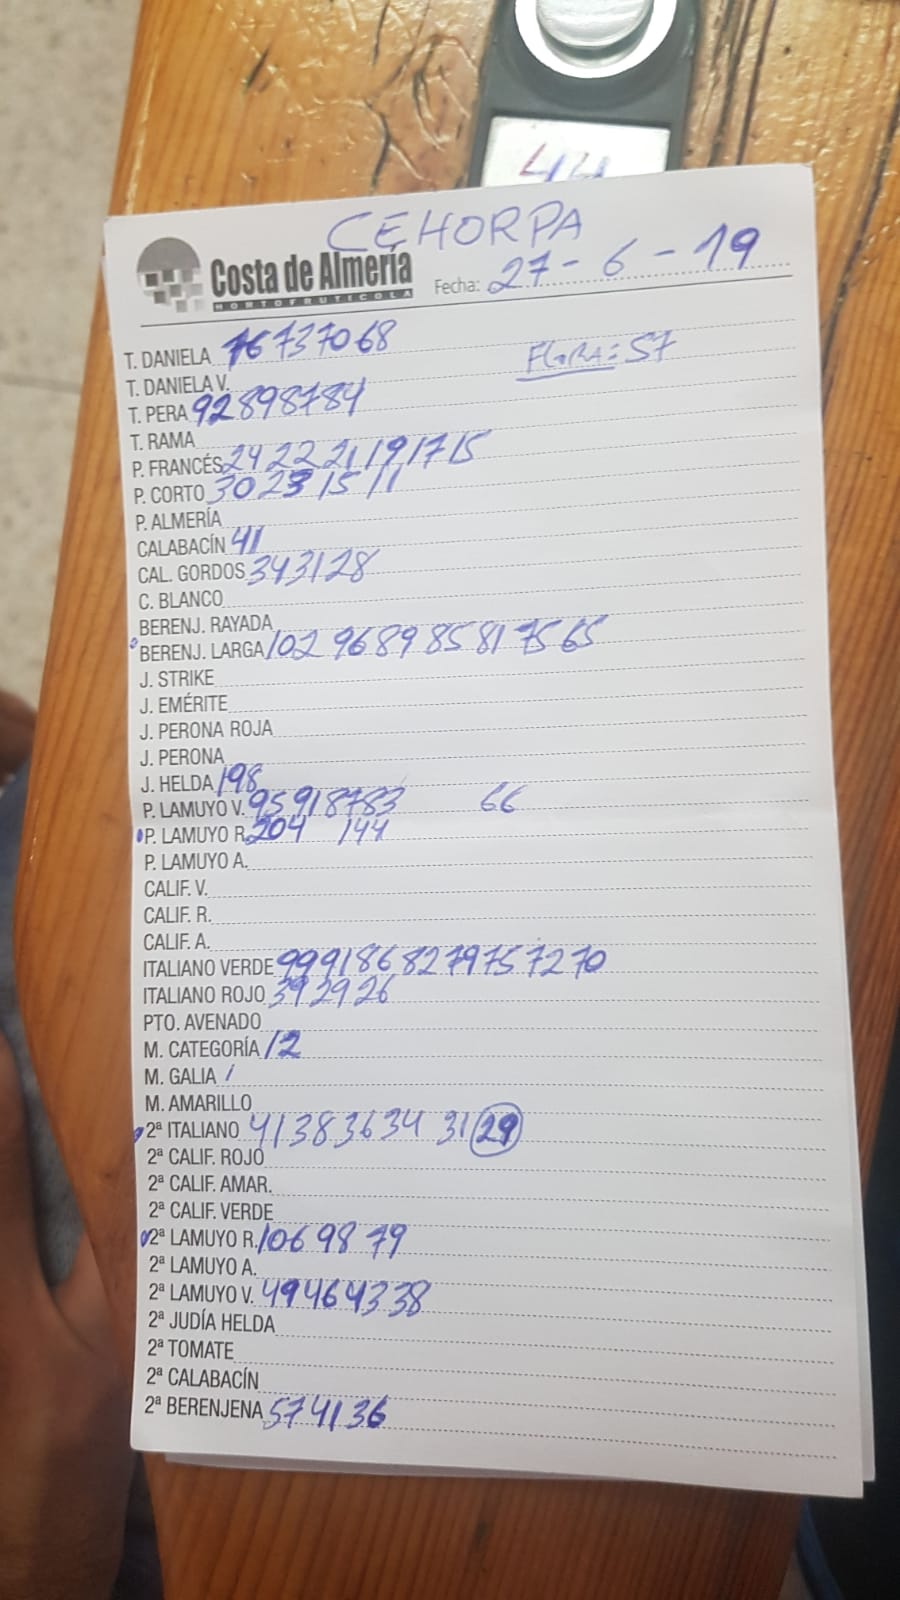 CEHORPA
Costa de Almería
HORTOFRUTICOLA
Fecha: 27-6-19
T. DANIELA 76 73 70 68
FLORA: 57
T. DANIELA V.
T. PERA 92 89 87 84
T. RAMA
P. FRANCÉS 24 22 21 19 17 15
P. CORTO 30 23 15 11
P. ALMERÍA
CALABACÍN 41
CAL. GORDOS 34 31 28
C. BLANCO
BERENJ. RAYADA
BERENJ. LARGA 102 96 89 85 81 75 65
J. STRIKE
J. EMÉRITE
J. PERONA ROJA
J. PERONA
J. HELDA 198
P. LAMUYO V. 95 91 87 83 66
P. LAMUYO R. 204 144
P. LAMUYO A.
CALIF. V.
CALIF. R.
CALIF. A.
ITALIANO VERDE 99 91 86 82 79 75 72 70
ITALIANO ROJO 39 29 26
PTO. AVENADO
M. CATEGORÍA 12
M. GALIA 1
M. AMARILLO
2ª ITALIANO 41 38 36 34 31 29
2ª CALIF. ROJO
2ª CALIF. AMAR.
2ª CALIF. VERDE
2ª LAMUYO R. 106 98 79
2ª LAMUYO A.
2ª LAMUYO V. 49 46 43 38
2ª JUDÍA HELDA
2ª TOMATE
2ª CALABACÍN
2ª BERENJENA 57 41 36